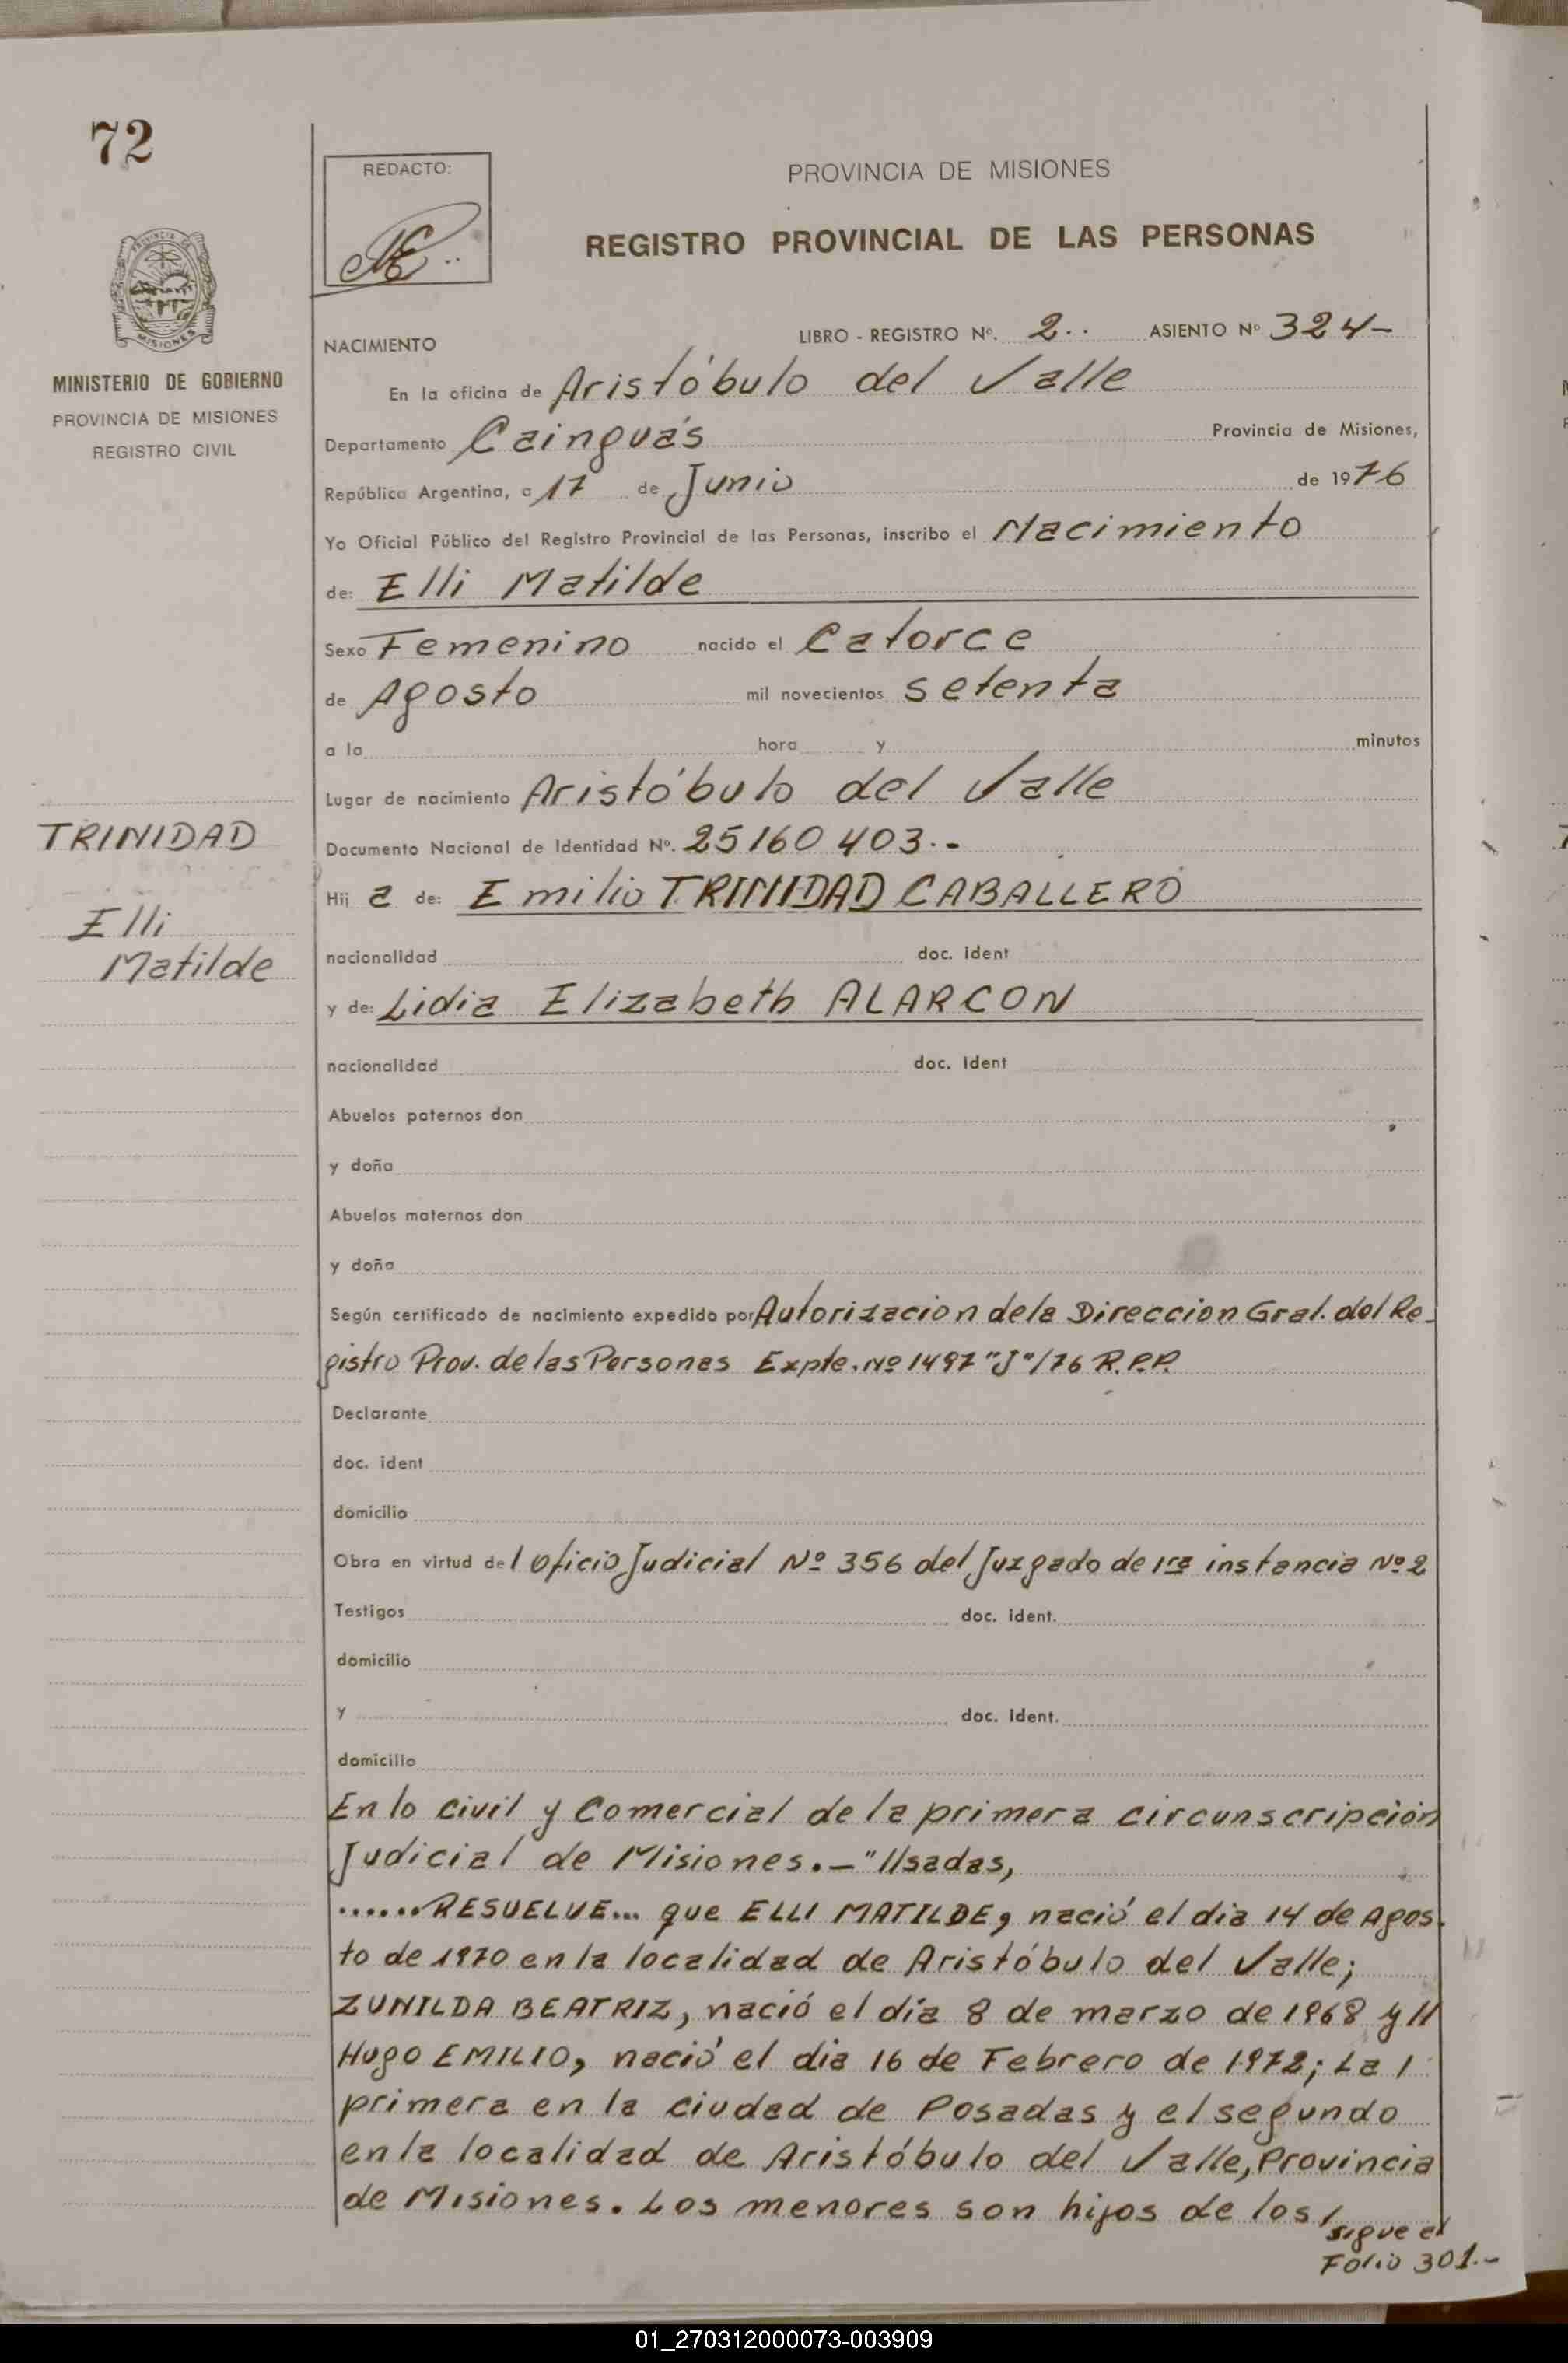 72
REDACTO:
PROVINCIA DE MISIONES
REGISTRO PROVINCIAL DE LAS PERSONAS
PROVINCIA DE
MISIONES
MINISTERIO DE GOBIERNO
PROVINCIA DE MISIONES
REGISTRO CIVIL
NACIMIENTO
LIBRO - REGISTRO Nº. 2.. ASIENTO Nº 324-
En la oficina de Aristóbulo del Valle
Departamento Cainguás Provincia de Misiones,
República Argentina, a 17 de Junio de 1976
Yo Oficial Público del Registro Provincial de las Personas, inscribo el Nacimiento
de: Elli Matilde
Sexo Femenino nacido el Catorce
de Agosto mil novecientos setenta
a la hora y minutos
Lugar de nacimiento Aristóbulo del Valle
TRINIDAD
Elli
Matilde
Documento Nacional de Identidad Nº. 25160403.-
Hij a de: Emilio TRINIDAD CABALLERO
nacionalidad doc. ident
y de: Lidia Elizabeth ALARCON
nacionalidad doc. ident
Abuelos paternos don
y doña
Abuelos maternos don
y doña
Según certificado de nacimiento expedido por Autorizacion de la Direccion Gral. del Re-
gistro Prov. de las Personas Expte. Nº 1497 "J"/76 R.P.P.
Declarante
doc. ident
domicilio
Obra en virtud del Oficio Judicial Nº 356 del Juzgado de 1ra instancia Nº 2
Testigos doc. ident.
domicilio
y doc. ident.
domicilio
En lo Civil y Comercial de la primera circunscripción
Judicial de Misiones.-"//sadas,
......RESUELVE... que ELLI MATILDE, nació el dia 14 de Agos-
to de 1970 en la localidad de Aristóbulo del Valle;
ZUNILDA BEATRIZ, nació el día 8 de marzo de 1968 y //
Hugo EMILIO, nació el dia 16 de Febrero de 1972; La /
primera en la ciudad de Posadas y el segundo
en la localidad de Aristóbulo del Valle, Provincia
de Misiones. Los menores son hijos de los/
sigue el
Folio 301.-
01_270312000073-003909